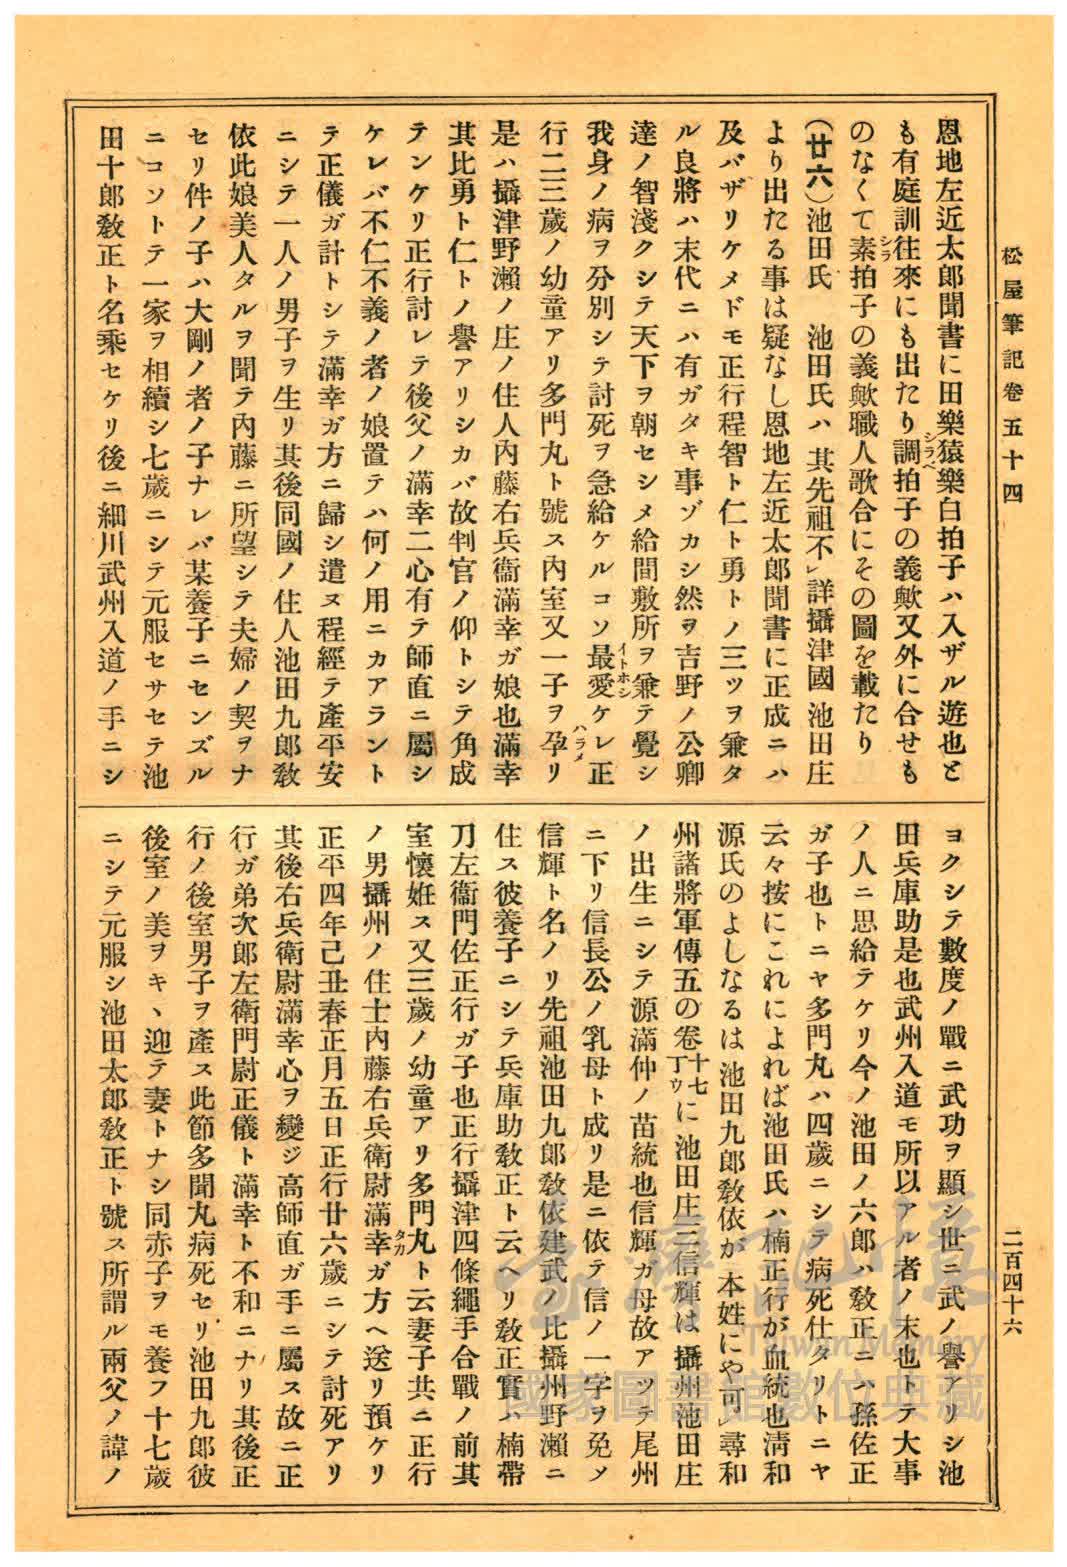 松屋筆記卷五十四
二百四十六
恩地左近太郎聞書に田樂猿樂白拍子ハ入ザル遊也と
も有庭訓往來にも出たり調拍子の義歟又外に合せも
シラベ
のなくて素拍子の義歟職人歌合にその圖を載たり
シラ
(廿六)池田氏 池田氏ハ其先祖不レ詳攝津國池田庄
より出たる事は疑なし恩地左近太郎聞書に正成ニハ
及バザリケメドモ正行程智ト仁ト勇トノ三ツヲ兼タ
ル良將ハ末代ニハ有ガタキ事ゾカシ然ヲ吉野ノ公卿
達ノ智淺クシテ天下ヲ朝セシメ給間敷所ヲ兼テ覺シ
我身ノ病ヲ分別シテ討死ヲ急給ケルコソ最愛ケレ正
イトホシ
行二三歲ノ幼童アリ多門丸ト號ス內室又一子ヲ孕リ
ハラメ
是ハ攝津野瀨ノ庄ノ住人內藤右兵衞滿幸ガ娘也滿幸
其比勇ト仁トノ譽アリシカバ故判官ノ仰トシテ角成
テンケリ正行討レテ後父ノ滿幸二心有テ師直ニ屬シ
ケレバ不仁不義ノ者ノ娘置テハ何ノ用ニカアラント
テ正儀ガ計トシテ滿幸ガ方ニ歸シ遣ヌ程經テ產平安
ニシテ一人ノ男子ヲ生リ其後同國ノ住人池田九郎敎
依此娘美人タルヲ聞テ內藤ニ所望シテ夫婦ノ契ヲナ
セリ件ノ子ハ大剛ノ者ノ子ナレバ某養子ニセンズル
ニコソトテ一家ヲ相續シ七歲ニシテ元服セサセテ池
田十郎敎正ト名乘セケリ後ニ細川武州入道ノ手ニシ
ヨクシテ數度ノ戰ニ武功ヲ顯シ世ニ武ノ譽アリシ池
田兵庫助是也武州入道モ所以アル者ノ末也トテ大事
ノ人ニ思給テケリ今ノ池田ノ六郎ハ敎正ニハ孫佐正
ガ子也トニヤ多門丸ハ四歲ニシテ病死仕タリトニヤ
云々按にこれによれば池田氏ハ楠正行が血統也淸和
源氏のよしなるは池田九郎敎依が本姓にや可レ尋和
州諸將軍傳五の卷十七丁ウに池田庄三信輝は攝州池田庄
ノ出生ニシテ源滿仲ノ苗統也信輝ガ母故アツテ尾州
ニ下リ信長公ノ乳母ト成リ是ニ依テ信ノ一字ヲ免メ
信輝ト名ノリ先祖池田九郎敎依建武ノ比攝州野瀨ニ
住ス彼養子ニシテ兵庫助敎正ト云ヘリ敎正實ハ楠帶
刀左衞門佐正行ガ子也正行攝津四條繩手合戰ノ前其
室懷姙ス又三歲ノ幼童アリ多門丸ト云妻子共ニ正行
ノ男攝州ノ住士內藤右兵衛尉滿幸ガ方ヘ送リ預ケリ
タカ
正平四年己丑春正月五日正行廿六歲ニシテ討死アリ
其後右兵衛尉滿幸心ヲ變ジ高師直ガ手ニ屬ス故ニ正
行ガ弟次郎左衛門尉正儀ト滿幸ト不和ニナリ其後正
行ノ後室男子ヲ產ス此節多聞丸病死セリ池田九郎彼
後室ノ美ヲキヽ迎テ妻トナシ同赤子ヲモ養フ十七歲
ニシテ元服シ池田太郎敎正ト號ス所謂ル兩父ノ諱ノ
臺灣記憶
Taiwan Memory
國家圖書館數位典藏